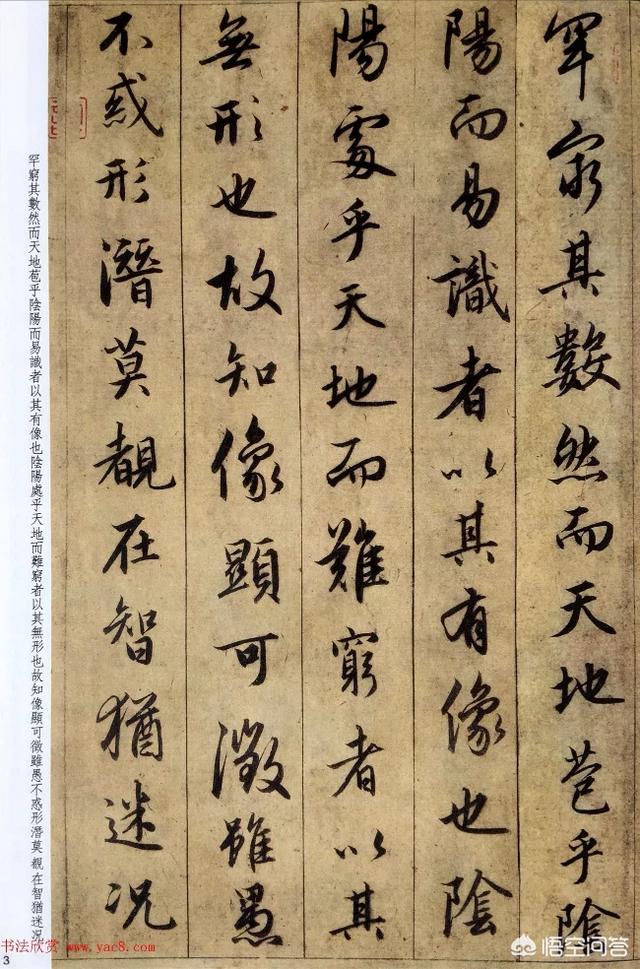 罕窮其數然而天地苞乎陰
陽而易識者以其有像也陰
陽處乎天地而難窮者以其
無形也故知像顯可徵雖愚
不惑形潛莫覩在智猶迷况
罕窮其數然而天地苞乎陰陽而易識者以其有像也陰陽處乎天地而難窮者以其無形也故知像顯可徵雖愚不惑形潛莫覩在智猶迷况
书法欣赏 www.yac8.com
3
悟空问答